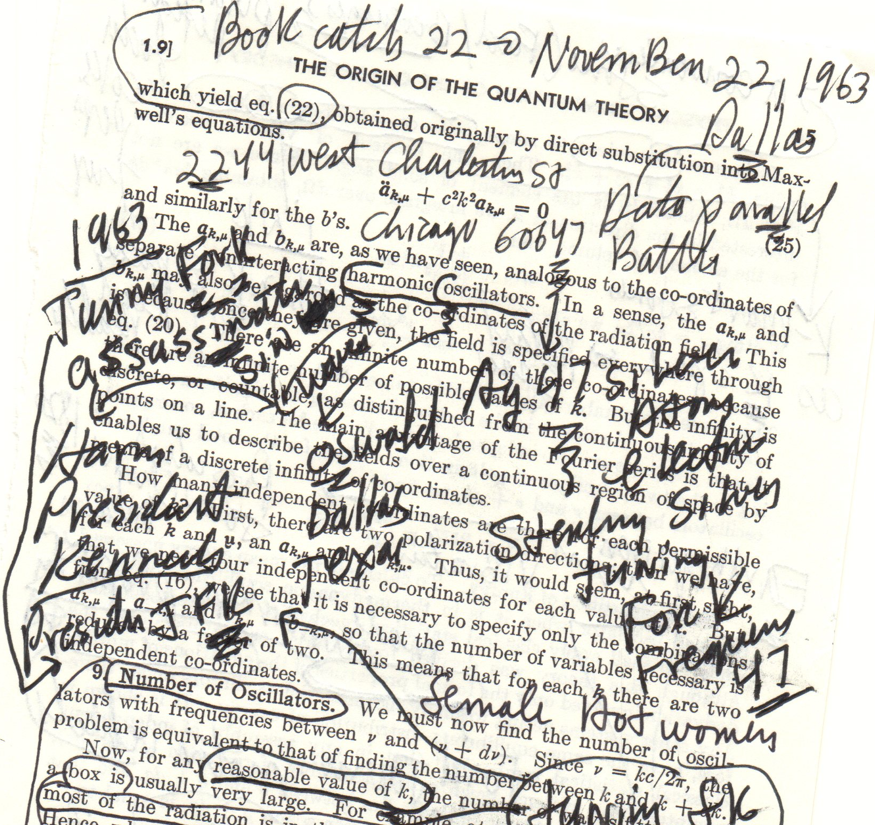 Book catch 22 → NovemBer 22, 1963
1.9]
THE ORIGIN OF THE QUANTUM THEORY
15
Dallas
which yield eq. (22), obtained originally by direct substitution into Max-
well's equations.
2244 west Charleston St
ä_{k,μ} + c²k²a_{k,μ} = 0
(25)
Chicago 60647
Data parallel
Battle
and similarly for the b's.
1963
The a_{k,μ} and b_{k,μ} are, as we have seen, analogous to the co-ordinates of
separate noninteracting harmonic oscillators. In a sense, the a_{k,μ} and
b_{k,μ} may also be regarded as the co-ordinates of the radiation field. This
is because once they are given, the field is specified everywhere through
eq. (20). There are an infinite number of these co-ordinates because
there are an infinite number of possible values of k. But the infinity is
discrete, or countable, as distinguished from the continuous infinity of
points on a line. The main advantage of the Fourier series is that it
enables us to describe the fields over a continuous region of space by
means of a discrete infinity of co-ordinates.
Fork
assassination
sin
waves
Ag 47 silver
Atom
electron
oswald
Dallas
Texas
Harm
President
Kennedy
President JFK
tuning
Fork
Frequency
47
How many independent co-ordinates are there for each permissible
value of k? First, there are two polarization directions; then we have,
for each k and μ, an a_{k,μ} and b_{k,μ}. Thus, it would seem, at first sight,
that we need four independent co-ordinates for each value of k. But
from eq. (16), we see that it is necessary to specify only the combinations
so that the number of variables necessary is
reduced by a factor of two. This means that for each k there are two
independent co-ordinates.
female Hot women
9. Number of Oscillators. We must now find the number of oscil-
lators with frequencies between ν and (ν + dν). Since ν = kc/2π, the
problem is equivalent to that of finding the number between k and k + dk.
Now, for any reasonable value of k, the number of waves
a box is usually very large. For example
most of the radiation is in the
Hence